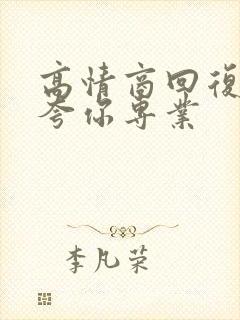 高情商回復
夸你專業
李凡荣